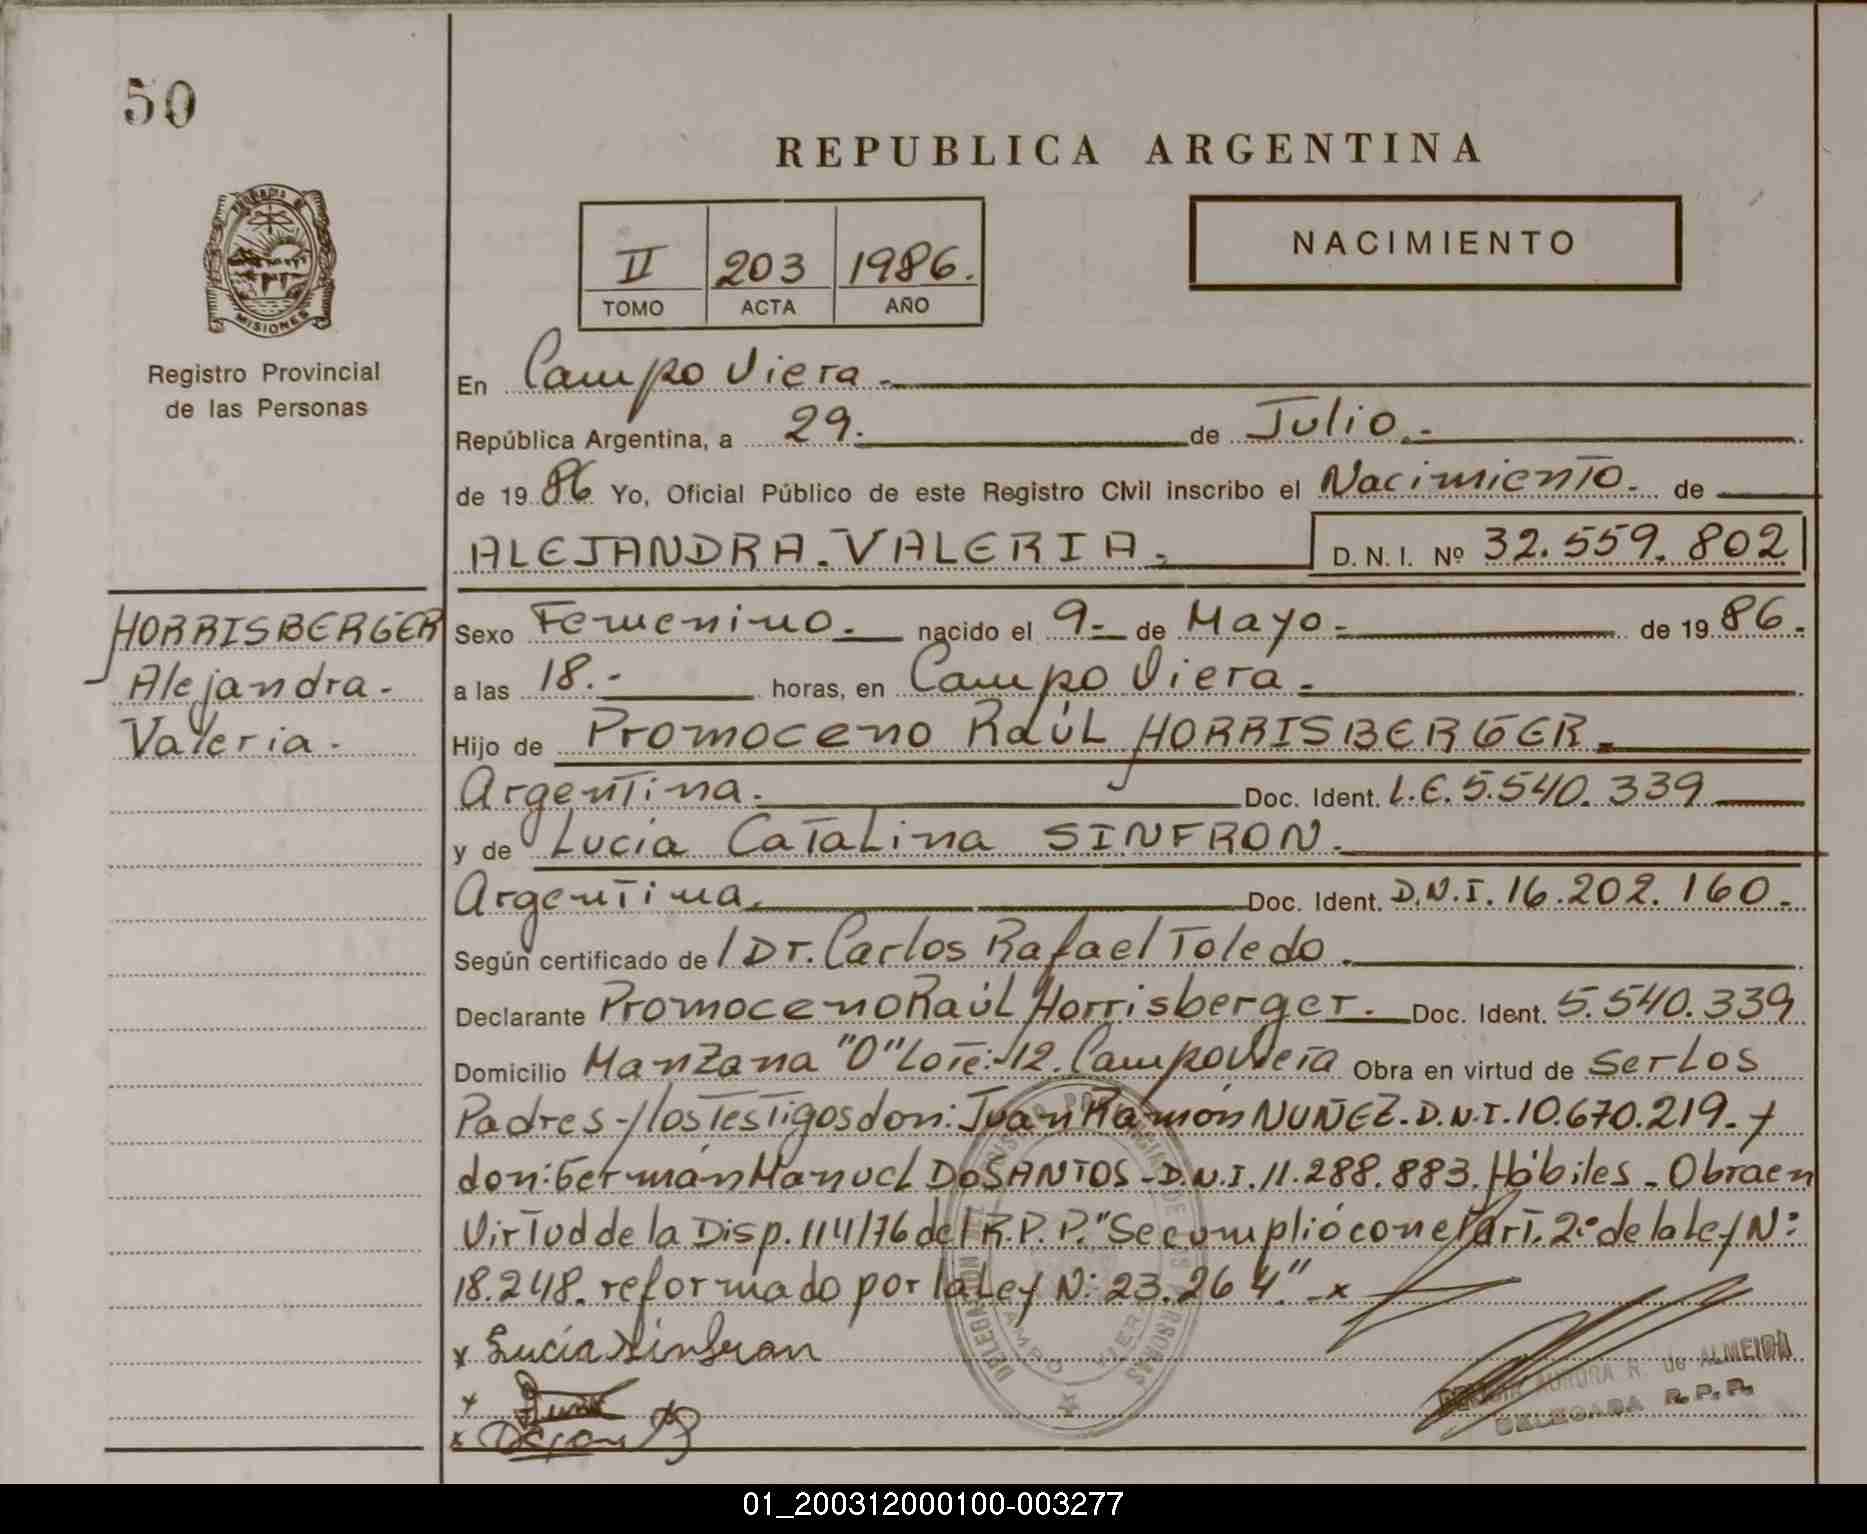 50
REPUBLICA ARGENTINA
II 203 1986.
TOMO ACTA AÑO
NACIMIENTO
MISIONES
Registro Provincial
de las Personas
En Campo Viera.-
República Argentina, a 29. de Julio.-
de 1986 Yo, Oficial Público de este Registro Civil inscribo el Nacimiento. de
ALEJANDRA. VALERIA. D. N. I. Nº 32.559.802
HORRISBERGER
Alejandra.-
Valeria.-
Sexo Femenino. nacido el 9.- de Mayo.- de 1986.-
a las 18.- horas, en Campo Viera.-
Hijo de Promoceno Raúl HORRISBERGER.
Argentina. Doc. Ident. L.E. 5.540.339
y de Lucia Catalina SINFRON.
Argentina. Doc. Ident. D.N.I. 16.202.160.-
Según certificado de / Dr. Carlos Rafael Toledo.
Declarante Promoceno Raúl Horrisberger. Doc. Ident. 5.540.339
Domicilio Manzana "O" Lote:-12. Campo Viera Obra en virtud de Ser Los
Padres-y los Testigos don: Juan Ramón NUÑEZ. D.N.I. 10.670.219.- y
don: Germán Manuel DoSANTOS - D.N.I. 11.288.883. Hábiles - Obra en
Virtud de la Disp. 114/76 del R.P.P. "Se cumplió con el art. 2º de la Ley Nº:
18.248. reformado por la Ley N: 23.264." - x
x Lucia Sinfron
x
x
AURORA R. de ALMEIDA
DELEGADA R.P.P.
CAMPO VIERA
01_200312000100-003277